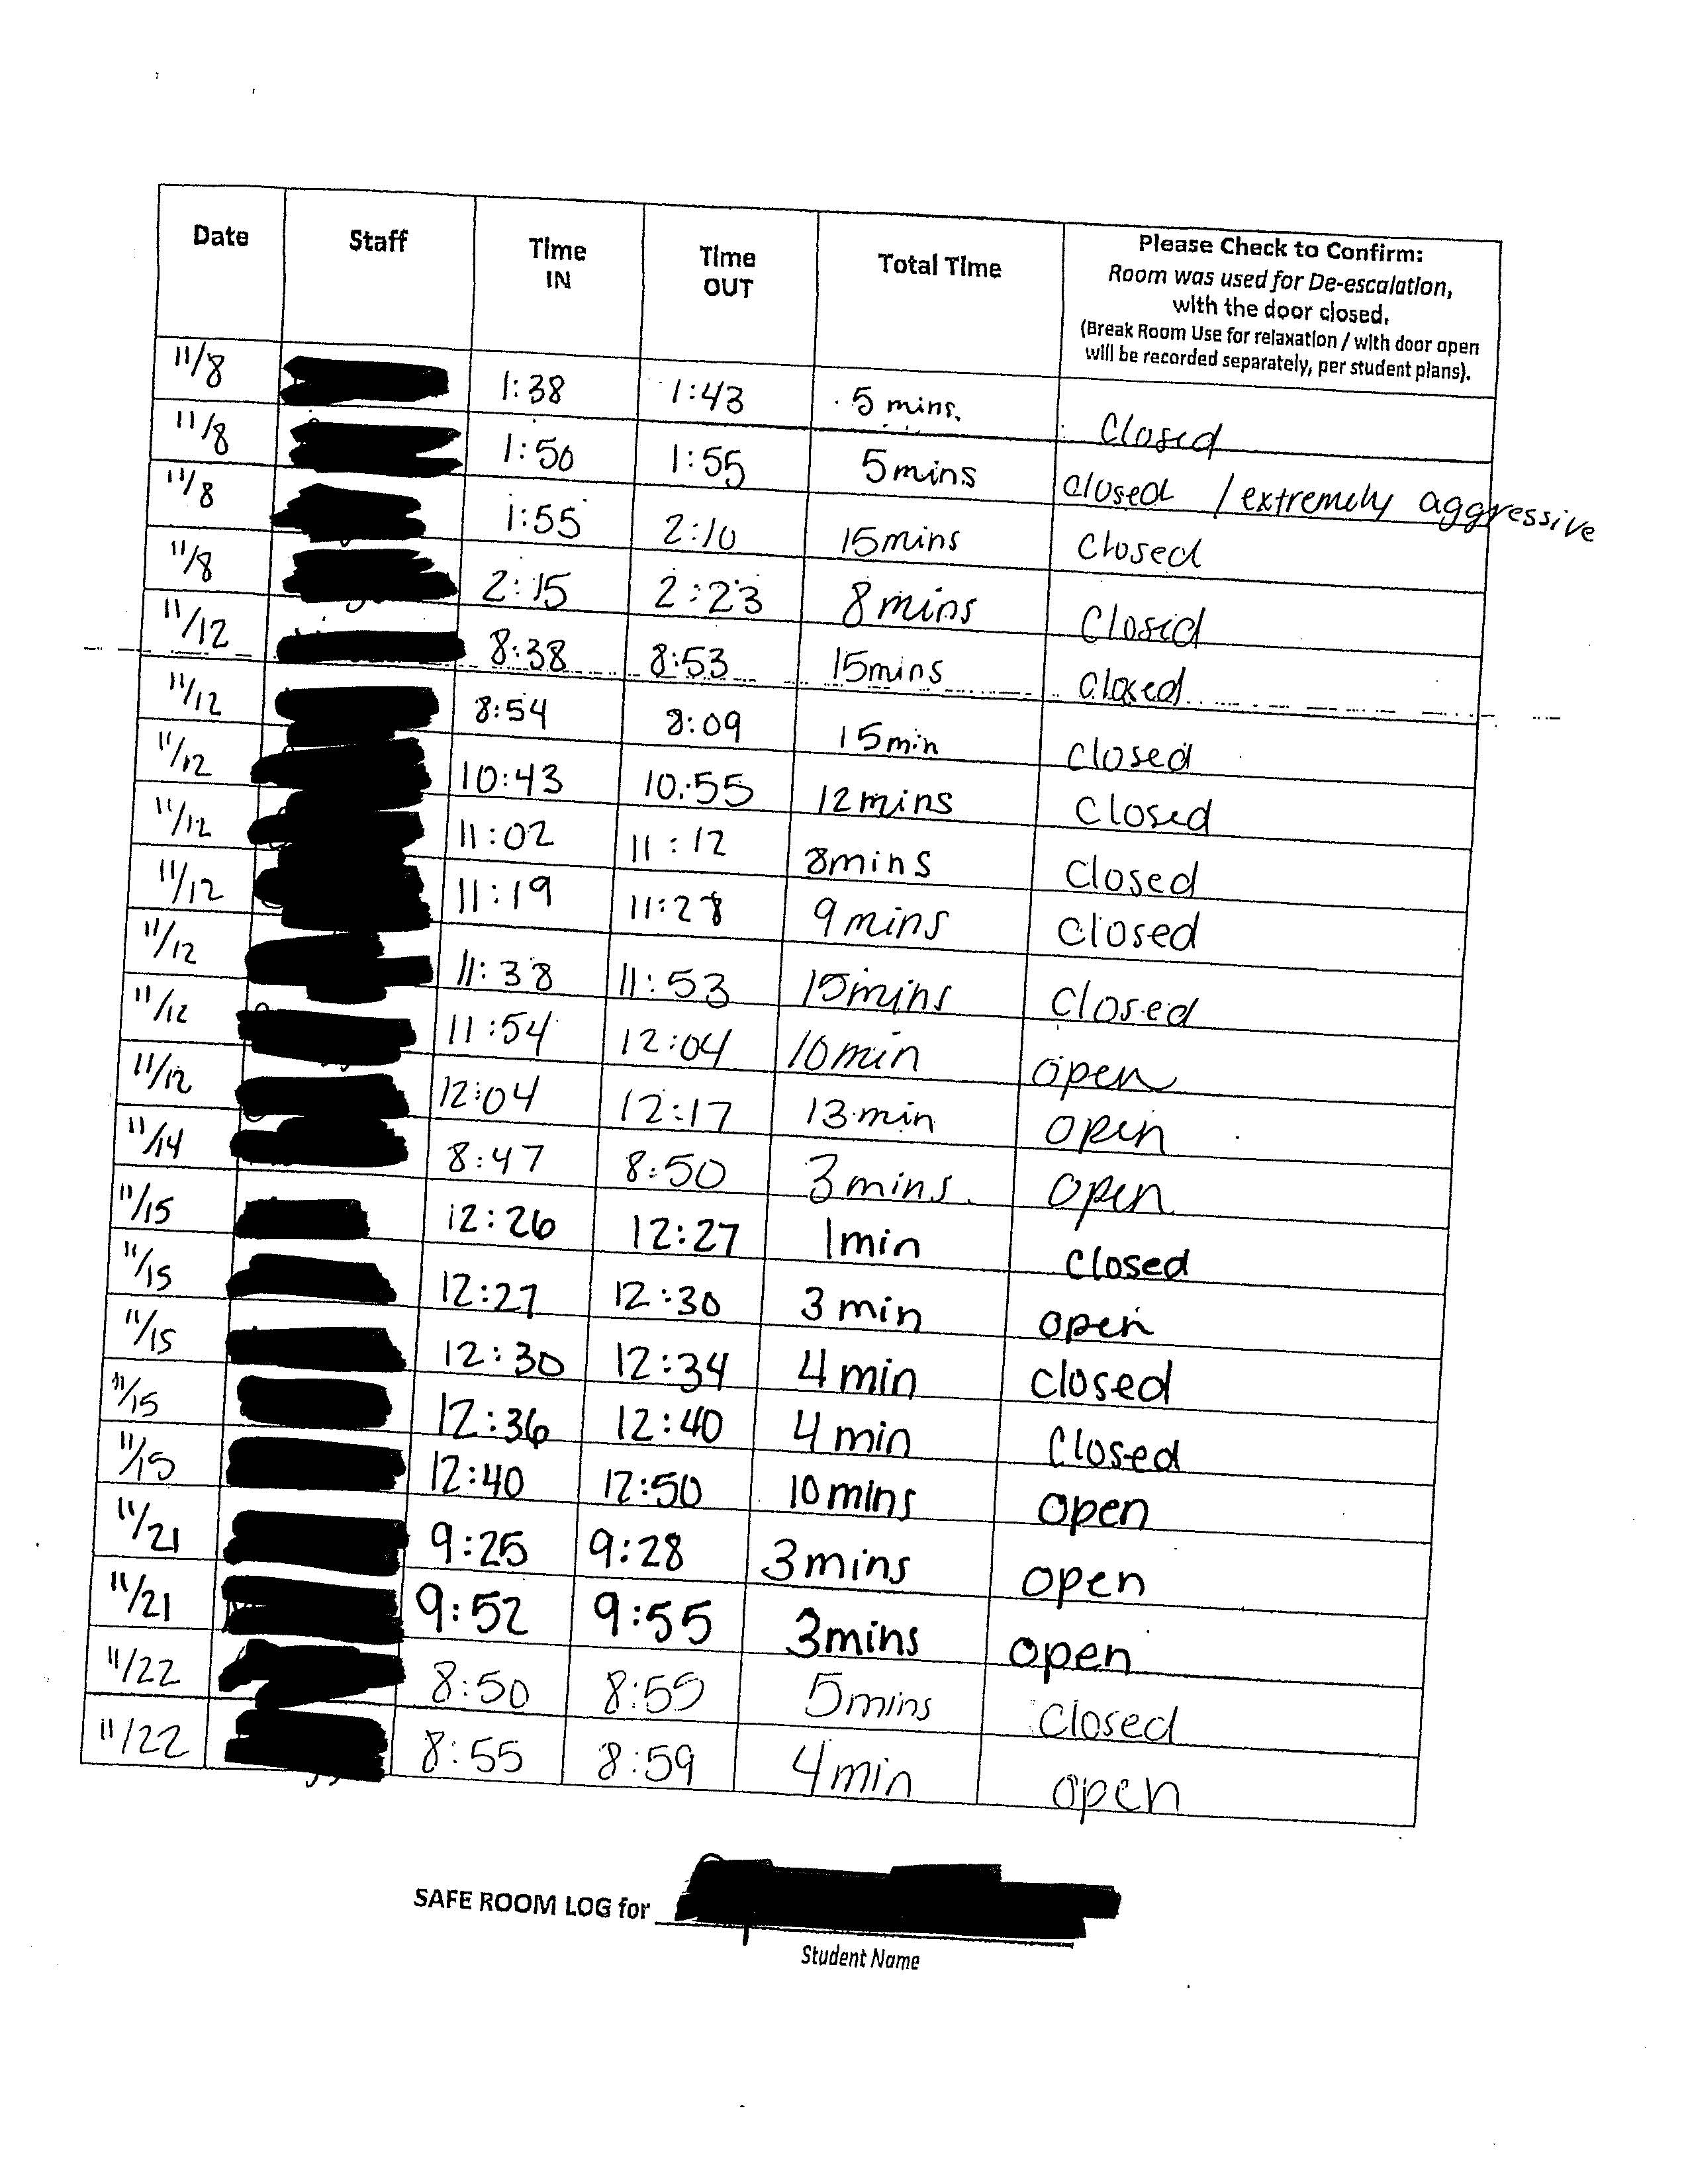 Date Staff Time IN Time OUT Total Time Please Check to Confirm:
Room was used for De-escalation,
with the door closed.
(Break Room Use for relaxation / with door open
will be recorded separately, per student plans).
11/8 1:38 1:43 5 mins. Closed
11/8 1:50 1:55 5 mins closed / extremely aggressive
11/8 1:55 2:10 15 mins Closed
11/8 2:15 2:23 8 mins Closed
11/12 8:38 8:53 15 mins closed
11/12 8:54 8:09 15 min closed
11/12 10:43 10:55 12 mins Closed
11/12 11:02 11:12 8 mins Closed
11/12 11:19 11:28 9 mins closed
11/12 11:38 11:53 15 mins Closed
11/12 11:54 12:04 10 min open
11/12 12:04 12:17 13 min open
11/14 8:47 8:50 3 mins. open
11/15 12:26 12:27 1 min closed
11/15 12:27 12:30 3 min open
11/15 12:30 12:34 4 min closed
11/15 12:36 12:40 4 min Closed
11/15 12:40 12:50 10 mins open
11/21 9:25 9:28 3 mins open
11/21 9:52 9:55 3 mins open
11/22 8:50 8:55 5 mins closed
11/22 8:55 8:59 4 min open
SAFE ROOM LOG for
Student Name